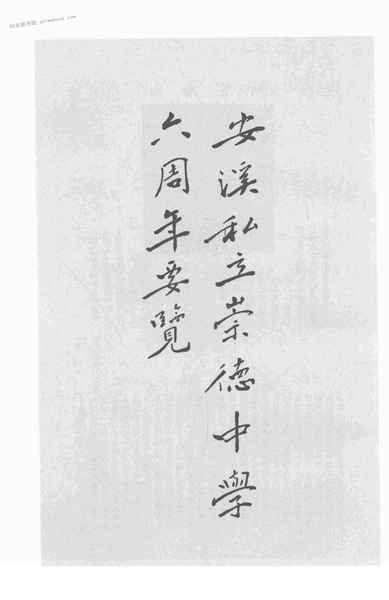 安溪私立崇德中學
六周年要覽